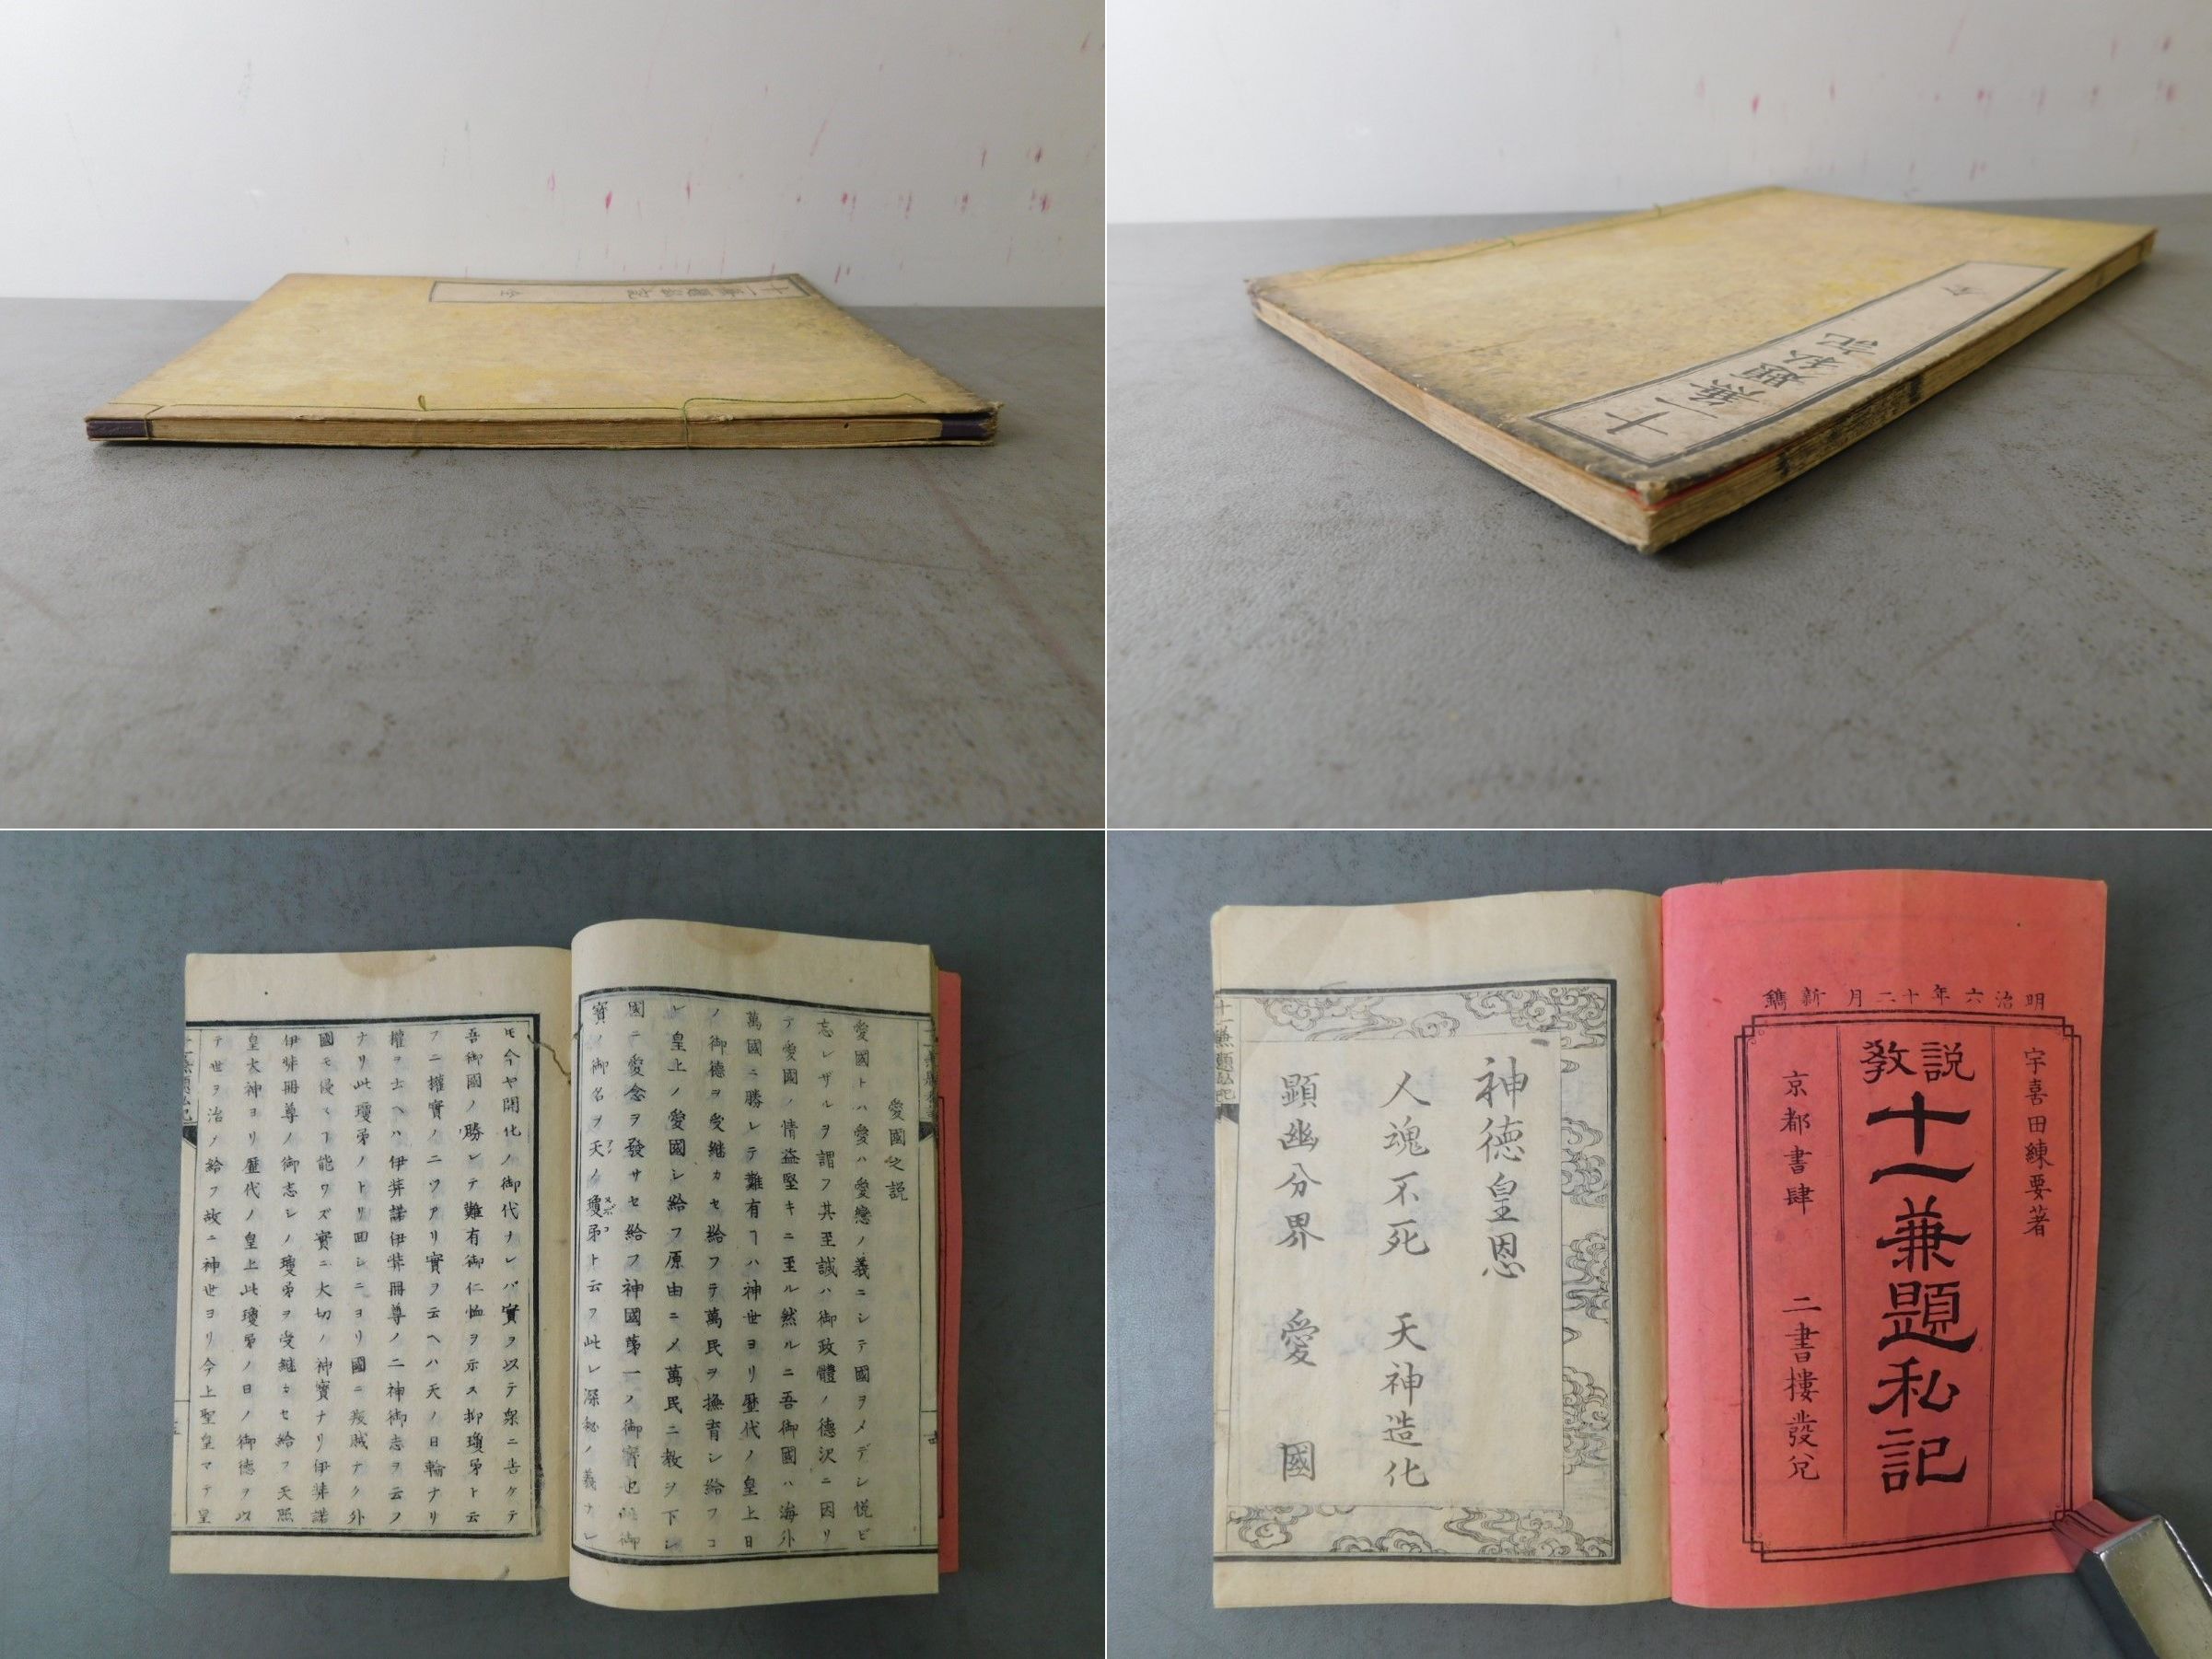 十一兼題私記
全
十一兼題私記
全
愛國之説
愛國トハ愛ハ愛戀ノ義ニシテ國ヲメデシ悦ビ
忘レザルヲ謂フ其至誠ハ御政體ノ德沢ニ因リ
テ愛國ノ情益堅キニ至ル然ルニ吾御國ハ海外
萬國ニ勝レテ難有ヿハ神世ヨリ歴代ノ皇上日
ノ御德ヲ受継カセ給フテ萬民ヲ撫育シ給フコ
レ皇上ノ愛國シ給フ原由ニメ萬民ニ教ヲ下シ
國ニ愛念ヲ發サセ給フ神國第一ノ御寳也此御
寳ノ御名ヲ天ノ瓊矛ト云フ此レ深秘ノ義ナレ
ヌボコ
十一兼題私記
モ今ヤ開化ノ御代ナレバ實ヲ以テ衆ニ告ケテ
吾御國ノ勝レテ難有御仁恤ヲ示ス抑瓊矛ト云
フニ權實ノ二ツアリ實ヲ云ヘハ天ノ日輪ナリ
權ヲ云ヘハ伊弉諾伊弉冊尊ノ二神御志ヲ云フ
ナリ此瓊矛ノトリ回シニヨリ國ニ叛賊ナク外
國モ侵スヿ能ワズ實ニ大切ノ神寳ナリ伊弉諾
伊弉冊尊ノ御志シノ瓊矛ヲ受継キセ給フ天照
皇大神ヨリ歴代ノ皇上此瓊矛ノ日ノ御德ヲ以
テ世ヲ治メ給フ故ニ神世ヨリ今上聖皇マテ皇
明治六年十二月新鐫
宇喜田練要著
説教
十一兼題私記
京都書肆 二書樓發兌
神德皇恩
人魂不死 天神造化
顕幽分界 愛國
十一兼題私記